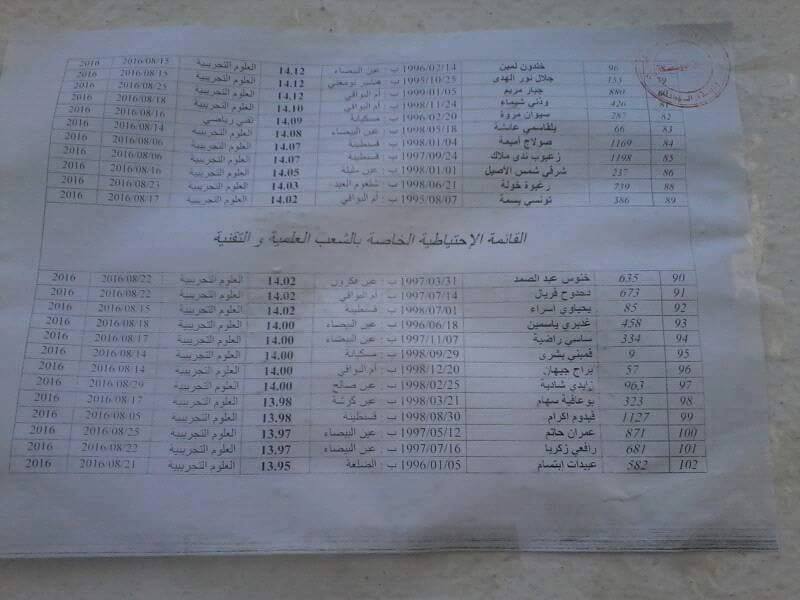 96 خلدون لمين 1996/02/14 ب : عين البيضاء 14.12 العلوم التجريبية 2016/08/15 2016
79 153 جلال نور الهدى 1995/10/25 ب : 14.12 العلوم التجريبية 2016/08/15 2016
80 880 جبار مريم 1999/01/05 ب : أم البواقي 14.12 العلوم التجريبية 2016/08/25 2016
81 426 ودني شيماء 1998/11/24 ب : أم البواقي 14.10 العلوم التجريبية 2016/08/18 2016
82 287 سيوان مروة 1996/02/20 ب : مسكيانة 14.09 تقني رياضي 2016/08/16 2016
83 66 بلقاسمي عائشة 1998/05/18 ب : عين البيضاء 14.08 العلوم التجريبية 2016/08/14 2016
84 1169 صولاح أميمة 1998/01/04 ب : قسنطينة 14.07 العلوم التجريبية 2016/08/06 2016
85 1198 زغيوب ندى ملاك 1997/09/24 ب : قسنطينة 14.07 العلوم التجريبية 2016/08/06 2016
86 237 شرقي شمس الأصيل 1998/01/01 ب : عين مليلة 14.05 العلوم التجريبية 2016/08/16 2016
88 739 رغيوة خولة 1998/06/21 ب : شلغوم العيد 14.03 العلوم التجريبية 2016/08/23 2016
89 386 تونسي بسمة 1995/08/07 ب : أم البواقي 14.02 العلوم التجريبية 2016/08/17 2016
القائمة الإحتياطية الخاصة بالشعب العلمية و التقنية
90 635 خنوس عبد الصمد 1997/03/31 ب : عين فكرون 14.02 العلوم التجريبية 2016/08/22 2016
91 673 دحدوح فريال 1997/07/14 ب : أم البواقي 14.02 العلوم التجريبية 2016/08/22 2016
92 85 يحياوي اسراء 1998/07/01 ب : قسنطينة 14.02 العلوم التجريبية 2016/08/15 2016
93 458 غديري ياسمين 1996/06/18 ب : عين البيضاء 14.00 العلوم التجريبية 2016/08/18 2016
94 334 ساسي راضية 1997/11/07 ب : عين البيضاء 14.00 العلوم التجريبية 2016/08/17 2016
95 9 قمبني بشرى 1998/09/29 ب : مسكيانة 14.00 العلوم التجريبية 2016/08/14 2016
96 57 براح جيهان 1998/12/20 ب : أم البواقي 14.00 العلوم التجريبية 2016/08/14 2016
97 963 زايدي شادية 1998/02/25 ب : عين صالح 14.00 العلوم التجريبية 2016/08/29 2016
98 323 بوعافية سهام 1998/03/21 ب : عين كرشة 13.98 العلوم التجريبية 2016/08/17 2016
99 1127 فيدوم اكرام 1998/08/30 ب : قسنطينة 13.98 العلوم التجريبية 2016/08/05 2016
100 871 عمران حاتم 1997/05/12 ب : عين البيضاء 13.97 العلوم التجريبية 2016/08/25 2016
101 681 رافعي زكريا 1997/07/16 ب : عين البيضاء 13.97 العلوم التجريبية 2016/08/22 2016
102 582 عبيدات إبتسام 1996/01/05 ب : الضلعة 13.95 العلوم التجريبية 2016/08/21 2016